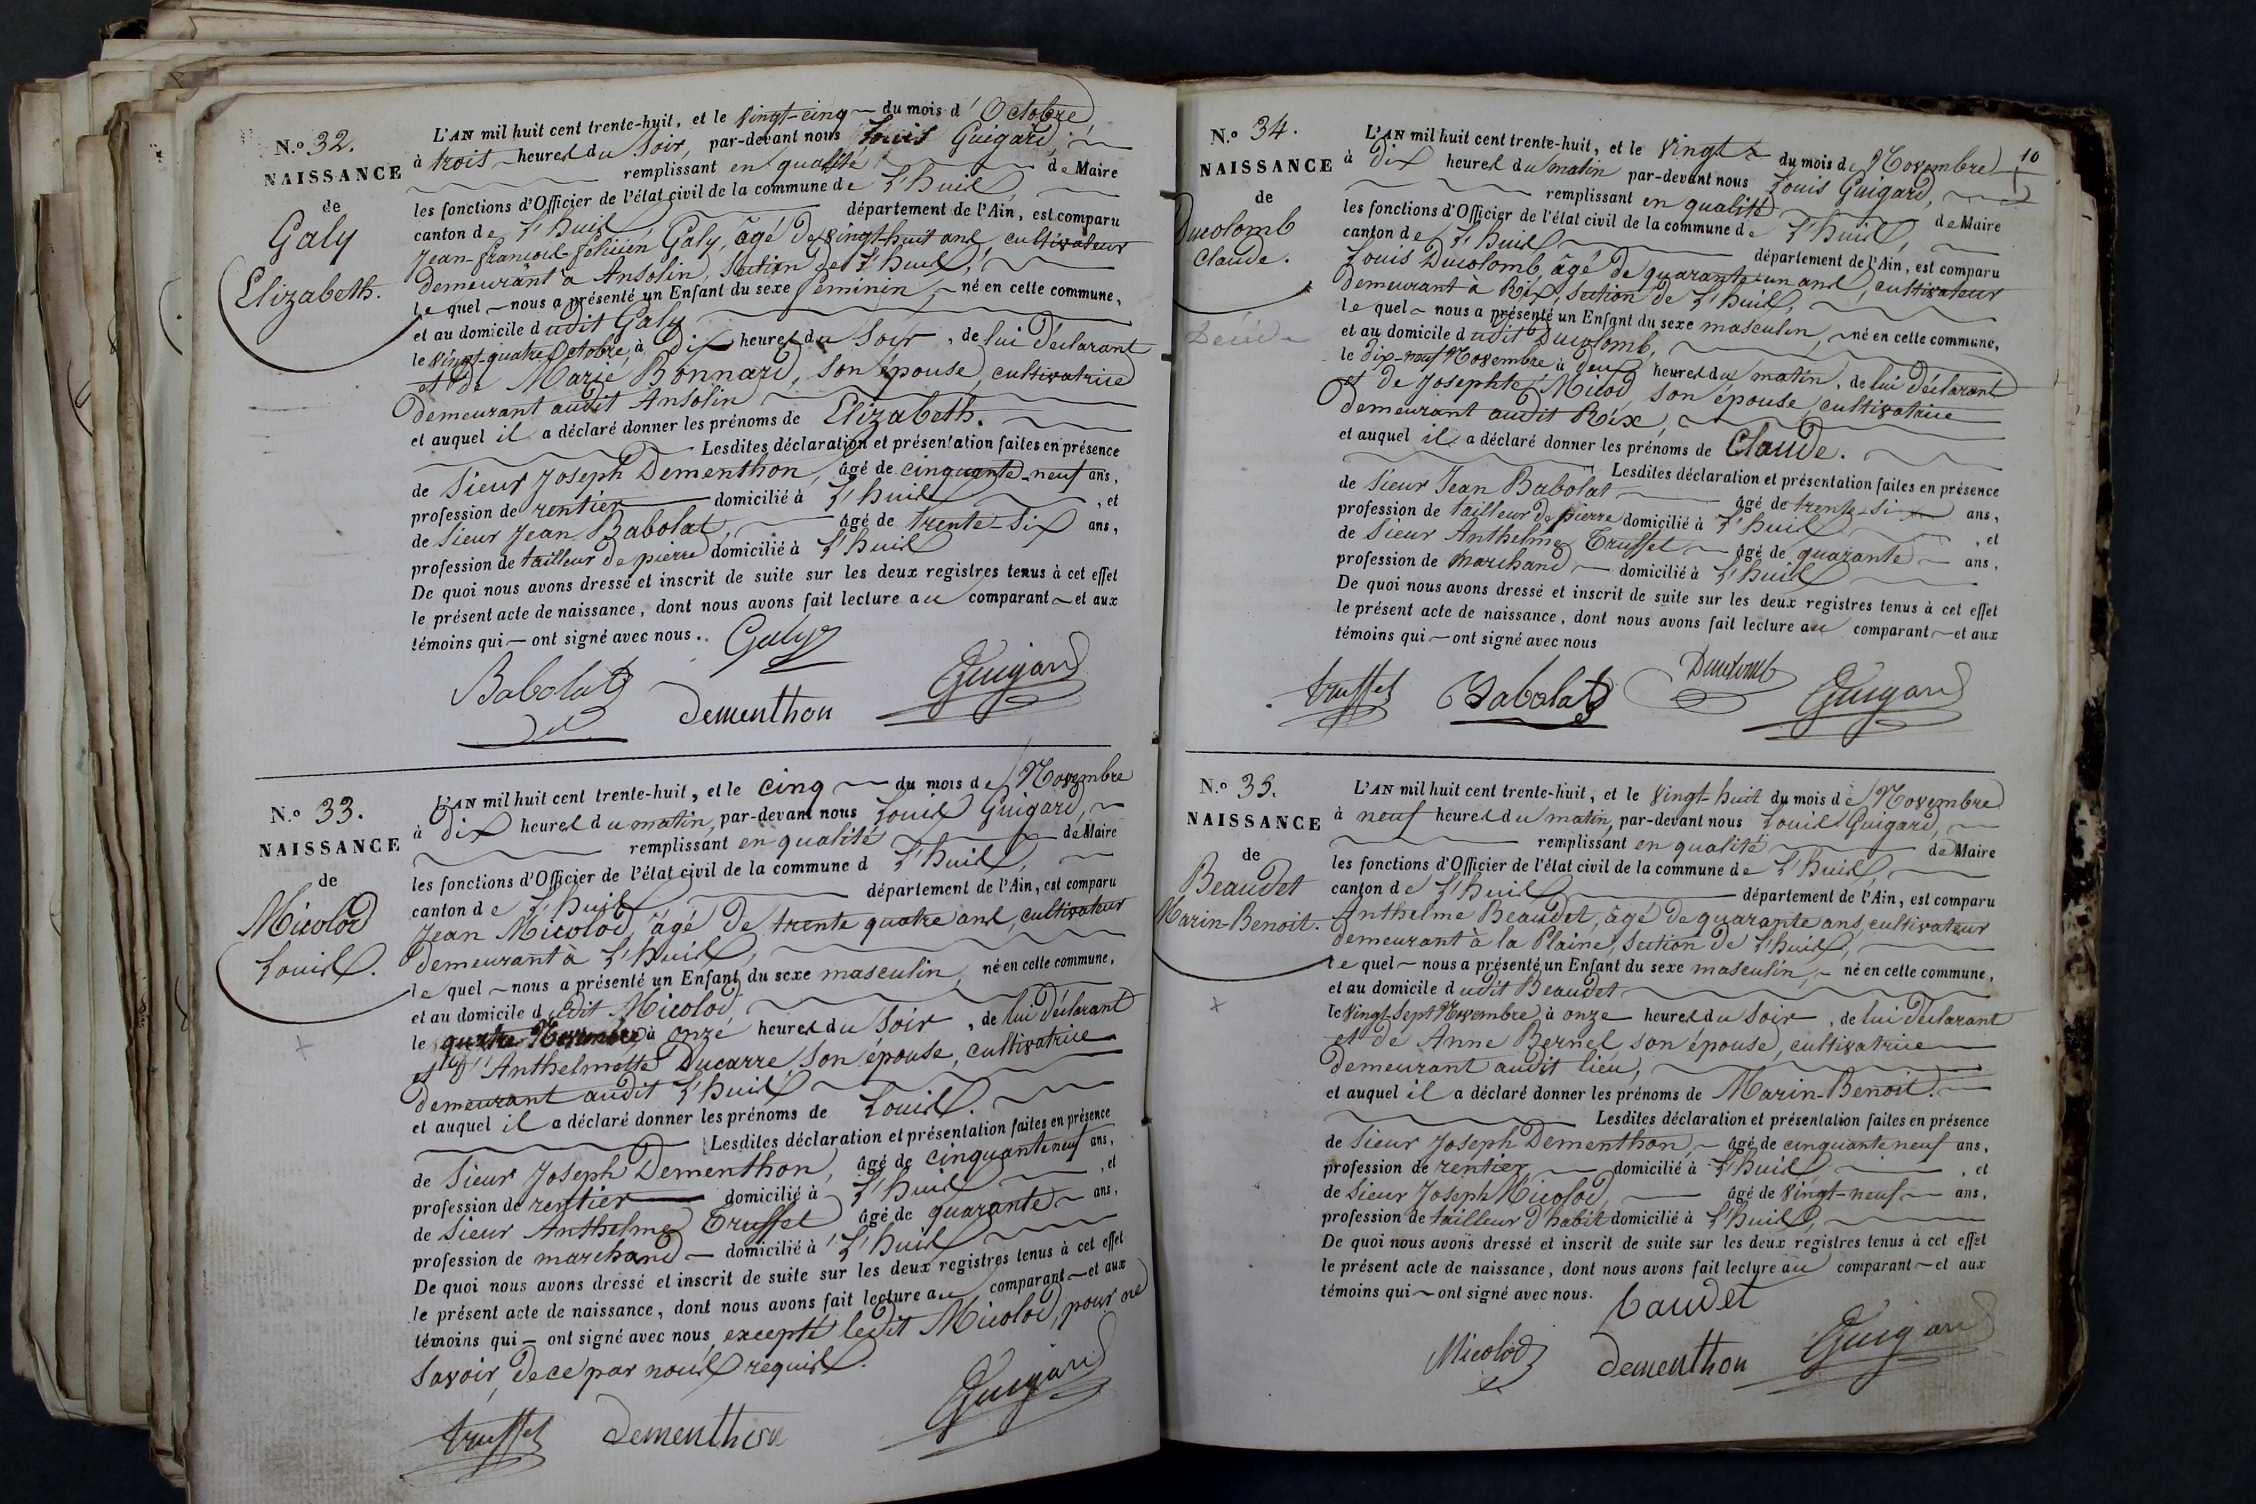 N.o 32.
NAISSANCE
de
Galy
Elizabeth.
L'AN mil huit cent trente-huit, et le vingt-cinq du mois d'Octobre,
à trois heures du Soir, par-devant nous Louis Guigard,
remplissant en qualité de Maire
les fonctions d'Officier de l'état civil de la commune de L'huis,
canton de L'huis département de l'Ain, est comparu
Jean-françois-félicien Galy, âgé de vingt-huit ans, cultivateur
demeurant à Ansolin, Section de L'huis,
lequel nous a présenté un Enfant du sexe féminin, né en cette commune,
et au domicile dudit Galy
le vingt-quatre Octobre, à Dix heures du Soir, de lui Déclarant
et de Marie Bonnard, son épouse, cultivatrice
demeurant audit Ansolin
et auquel il a déclaré donner les prénoms de Elizabeth.
Lesdites déclaration et présentation faites en présence
de Sieur Joseph Dementhon, âgé de cinquante-neuf ans,
profession de rentier domicilié à L'huis, et
de Sieur Jean Babolat, âgé de trente-six ans,
profession de tailleur de pierre domicilié à L'huis
De quoi nous avons dressé et inscrit de suite sur les deux registres tenus à cet effet
le présent acte de naissance, dont nous avons fait lecture au comparant et aux
témoins qui ont signé avec nous.
Galy
Babolat
Dementhon
Guigard
N.o 33.
NAISSANCE
de
Micolod
Louis.
L'AN mil huit cent trente-huit, et le cinq du mois de Novembre
à Dix heures du matin, par-devant nous Louis Guigard,
remplissant en qualité de Maire
les fonctions d'Officier de l'état civil de la commune d L'huis,
canton de L'huis département de l'Ain, est comparu
Jean Micolod, âgé de trente quatre ans, cultivateur
demeurant à L'huis,
lequel nous a présenté un Enfant du sexe masculin, né en cette commune,
et au domicile dudit Micolod,
le quatre Novembre à onze heures du Soir, de lui Déclarant
et d'Anthelmette Ducarre, son épouse, cultivatrice
demeurant audit L'huis
et auquel il a déclaré donner les prénoms de Louis.
Lesdites déclaration et présentation faites en présence
de Sieur Joseph Dementhon, âgé de cinquante neuf ans,
profession de rentier domicilié à L'huis, et
de Sieur Anthelme Truffet âgé de quarante ans,
profession de marchand domicilié à L'huis
De quoi nous avons dressé et inscrit de suite sur les deux registres tenus à cet effet
le présent acte de naissance, dont nous avons fait lecture au comparant et aux
témoins qui ont signé avec nous excepté ledit Micolod, pour ne
Savoir, de ce par nous requis.
truffet
Dementhon
Guigard
10
N.o 34.
NAISSANCE
de
Ducolomb
Claude.
L'AN mil huit cent trente-huit, et le vingt du mois de Novembre
à Dix heures du matin par-devant nous Louis Guigard,
remplissant en qualité de Maire
les fonctions d'Officier de l'état civil de la commune de L'huis,
canton de L'huis département de l'Ain, est comparu
Louis Ducolomb, âgé de quarante-un ans, cultivateur
demeurant à Rix, section de L'huis,
lequel nous a présenté un Enfant du sexe masculin, né en cette commune,
et au domicile dudit Ducolomb,
le dix-neuf Novembre à deux heures du matin, de lui Déclarant
et de Josephte Micod, son épouse, cultivatrice
demeurant audit Rix,
et auquel il a déclaré donner les prénoms de Claude.
Lesdites déclaration et présentation faites en présence
de Sieur Jean Babolat âgé de trente-six ans,
profession de tailleur de pierre domicilié à L'huis, et
de Sieur Anthelme Truffet âgé de quarante ans,
profession de marchand domicilié à L'huis
De quoi nous avons dressé et inscrit de suite sur les deux registres tenus à cet effet
le présent acte de naissance, dont nous avons fait lecture au comparant et aux
témoins qui ont signé avec nous
truffet
Babolat
Ducolomb
Guigard
N.o 35.
NAISSANCE
de
Beaudet
Marin-Benoit.
L'AN mil huit cent trente-huit, et le vingt-huit du mois de Novembre
à neuf heures du matin, par-devant nous Louis Guigard,
remplissant en qualité de Maire
les fonctions d'Officier de l'état civil de la commune de L'huis,
canton de L'huis département de l'Ain, est comparu
Anthelme Beaudet, âgé de quarante ans, cultivateur
demeurant à la Plaine, section de L'huis,
lequel nous a présenté un Enfant du sexe masculin, né en cette commune,
et au domicile dudit Beaudet
le vingt-sept Novembre à onze heures du Soir, de lui Déclarant
et de Anne Bernel, son épouse, cultivatrice
demeurant audit lieu,
et auquel il a déclaré donner les prénoms de Marin-Benoit.
Lesdites déclaration et présentation faites en présence
de Sieur Joseph Dementhon, âgé de cinquante neuf ans,
profession de rentier, domicilié à L'huis, et
de Sieur Joseph Micolod, âgé de vingt-neuf ans,
profession de tailleur d'habit domicilié à L'huis,
De quoi nous avons dressé et inscrit de suite sur les deux registres tenus à cet effet
le présent acte de naissance, dont nous avons fait lecture au comparant et aux
témoins qui ont signé avec nous.
baudet
Micolod
Dementhon
Guigard